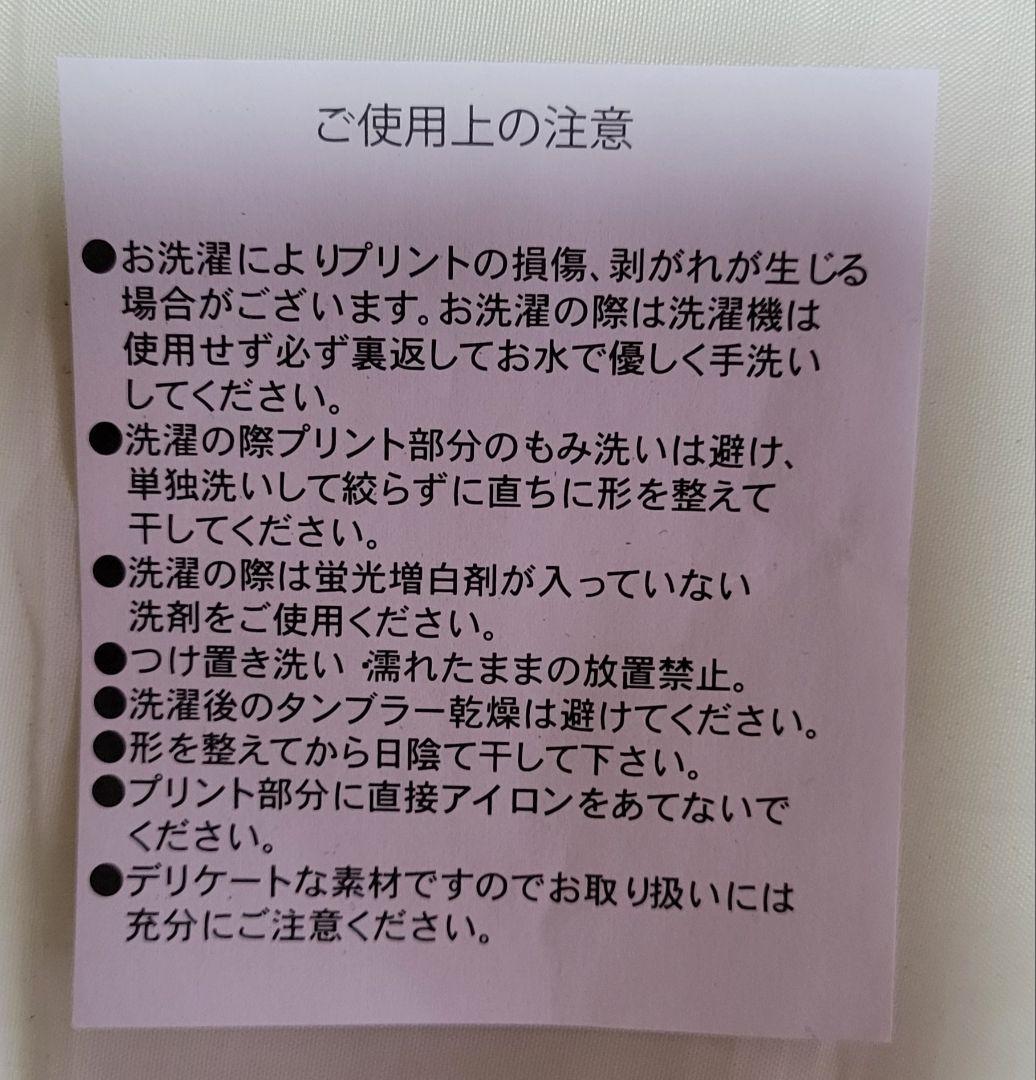 ご使用上の注意
●お洗濯によりプリントの損傷、剥がれが生じる
場合がございます。お洗濯の際は洗濯機は
使用せず必ず裏返してお水で優しく手洗い
してください。
●洗濯の際プリント部分のもみ洗いは避け、
単独洗いして絞らずに直ちに形を整えて
干してください。
●洗濯の際は蛍光増白剤が入っていない
洗剤をご使用ください。
●つけ置き洗い・濡れたままの放置禁止。
●洗濯後のタンブラー乾燥は避けてください。
●形を整えてから日陰て干して下さい。
●プリント部分に直接アイロンをあてないで
ください。
●デリケートな素材ですのでお取り扱いには
充分にご注意ください。